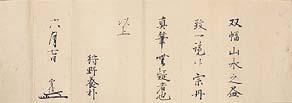 双幅山水之畫
致一覧候宗丹
真筆無疑者也
以上
狩野養朴
六月廿日